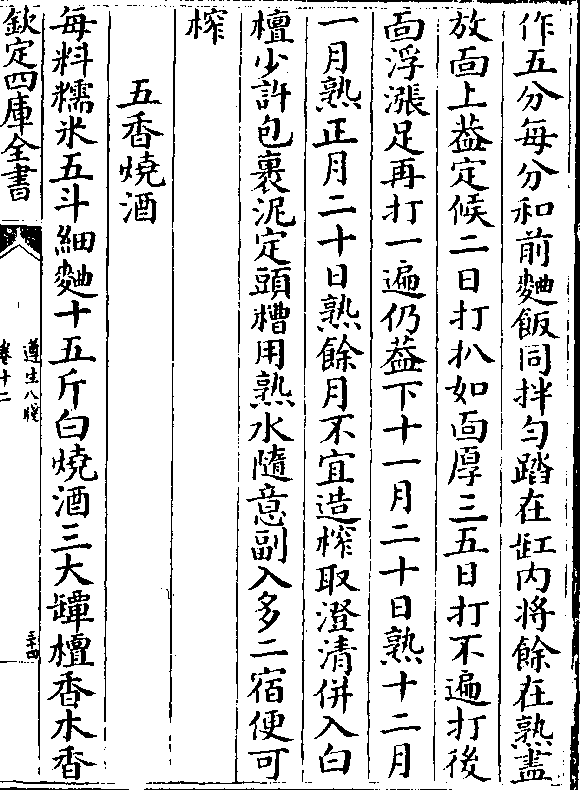 作五分每分和前麯飯同拌勻踏在缸内將餘在熟盡
放面上葢定候二日打扒如面厚三五日打不遍打後
面浮漲足再打一遍仍葢下十一月二十日熟十二月
一月熟正月二十日熟餘月不宜造榨取澄清併入白
檀少許包裹泥定頭糟用熟水隨意副入多二宿便可
榨
五香燒酒
每料糯米五斗細麯十五斤白燒酒三大罈檀香木香
欽定四庫全書
遵生八牋
卷十二
三十四